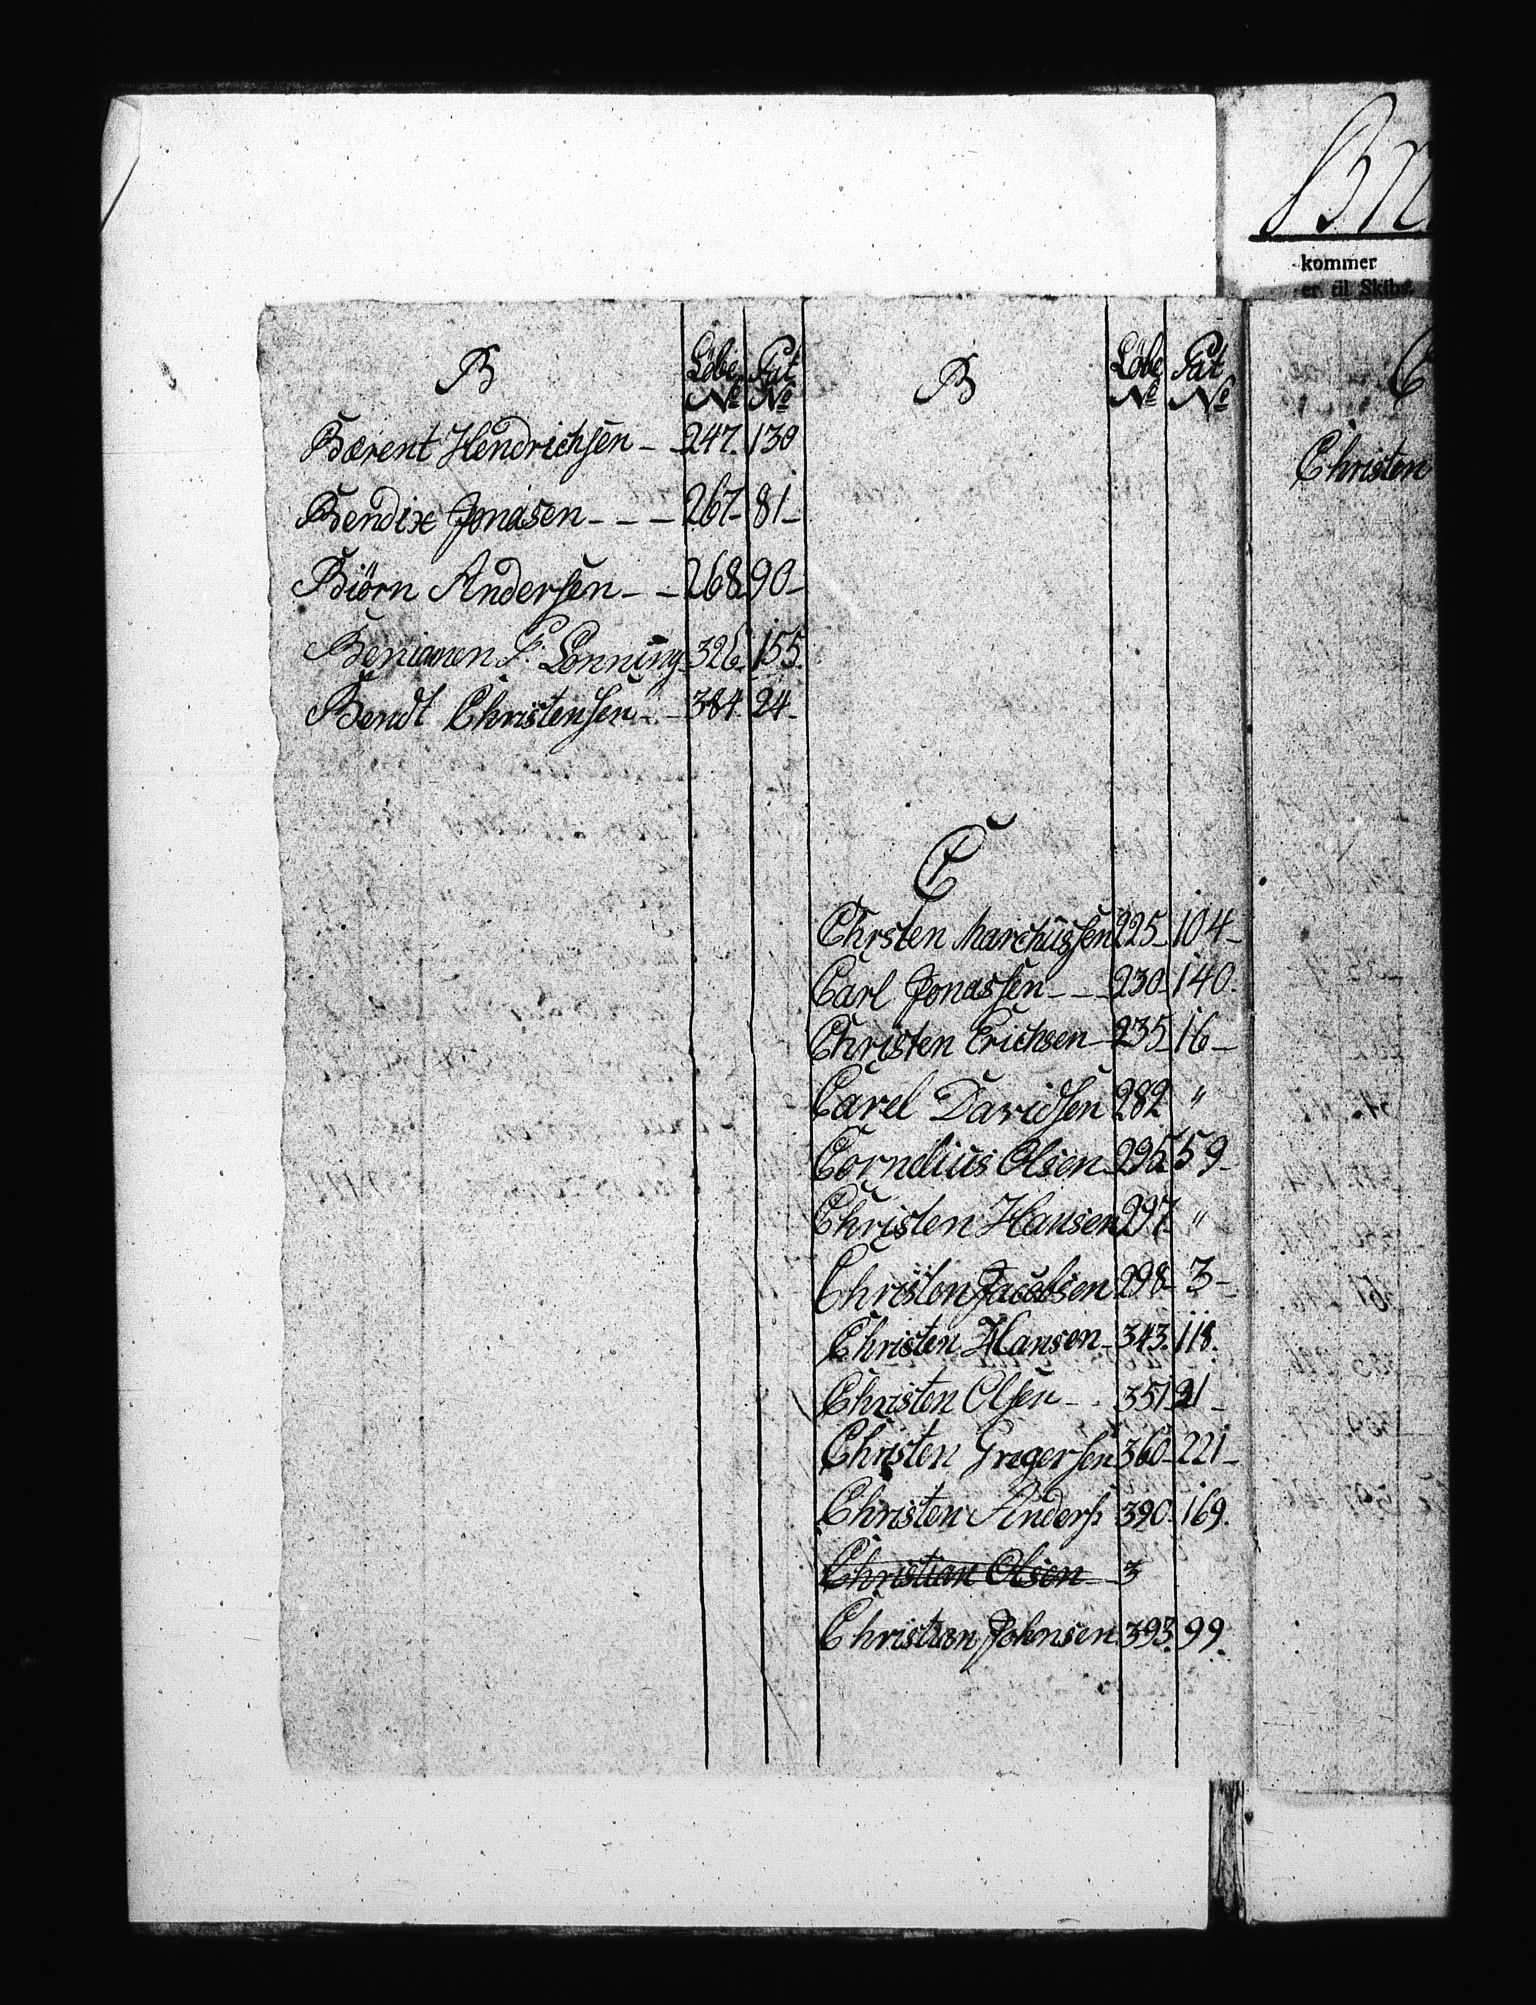 B Löbe No Pat No
Bærent Hendrichsen - - 247. 130
Bendix Jonasen - - - 267 - 81 -
Biörn Andersen - - 268. 90 -
Beniamen P. Lonning 326. 155.
Bendt Christensen - - 384. 24 -
B Löbe No Pat No
C
Chrsten Marchussen 225 - 104 -
Carl Jonassen - - - 230 - 140.
Christen Erichsen - 235 - 16 -
Carel Davidsen 282 "
Cornelius Olsen - 295. 59 -
Christen Hansen 297. "
Christen Jacobsen 298 - 3 -
Christen Hansen - 343. 118.
Christen Olsen - . 351. 21 -
Christen Gregersen 360 - 221 -
Christen Anders 390. 169.
Christian Olsen - 3
Christian Johnsen 393. 99.
kommer
er til Skibs
C
Christen